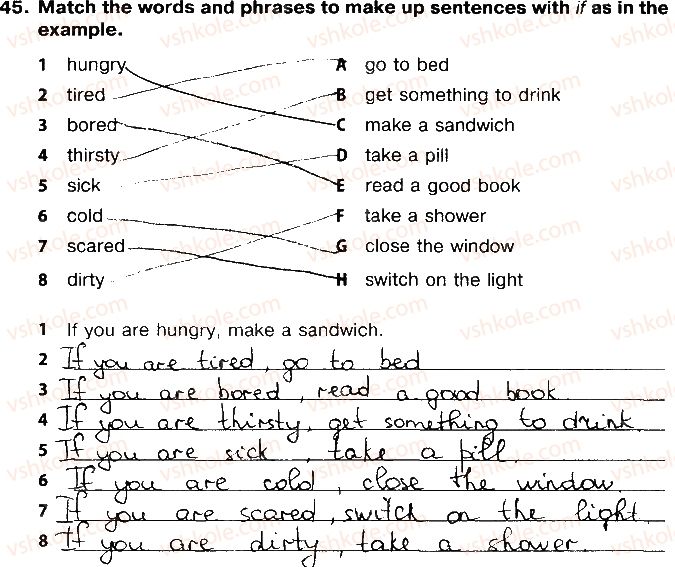 45. Match the words and phrases to make up sentences with if as in the
example.
1 hungry A go to bed
2 tired B get something to drink
3 bored C make a sandwich
4 thirsty D take a pill
5 sick E read a good book
6 cold F take a shower
7 scared G close the window
8 dirty H switch on the light
1 If you are hungry, make a sandwich.
2 If you are tired, go to bed
3 If you are bored, read a good book.
4 If you are thirsty, get something to drink
5 If you are sick, take a pill.
6 If you are cold, close the window.
7 If you are scared, switch on the light.
8 If you are dirty, take a shower.